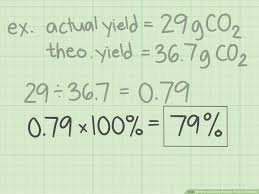 ex. actual yield = 29gCO2
theo. yield = 36.7g CO2
29 ÷ 36.7 = 0.79
0.79 × 100% = 79%